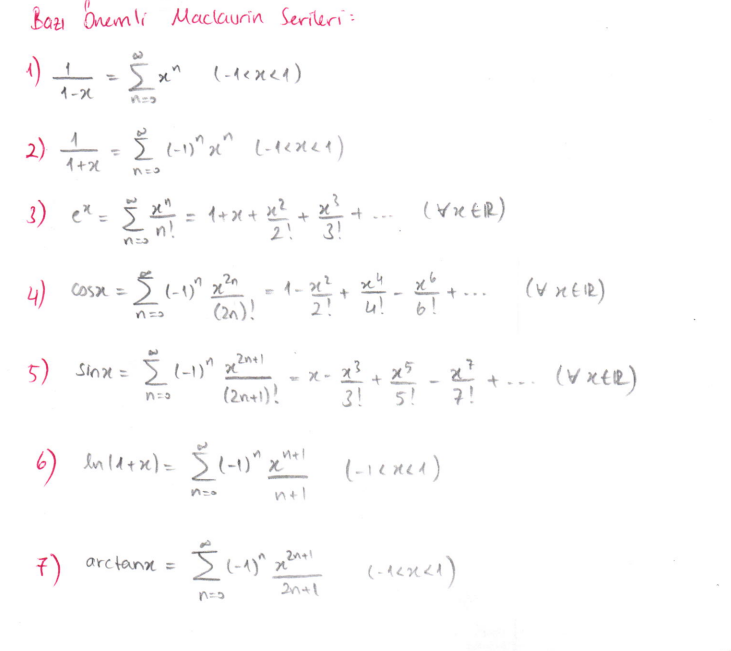 Bazı Önemli Maclaurin Serileri:
1) 1/(1-x) = ∑_{n=0}^{∞} x^n (-1<x<1)
2) 1/(1+x) = ∑_{n=0}^{∞} (-1)^n x^n (-1<x<1)
3) e^x = ∑_{n=0}^{∞} x^n/n! = 1+x+x^2/2!+x^3/3!+... (∀x∈ℝ)
4) cosx = ∑_{n=0}^{∞} (-1)^n x^{2n}/(2n)! = 1-x^2/2!+x^4/4!-x^6/6!+... (∀x∈ℝ)
5) sinx = ∑_{n=0}^{∞} (-1)^n x^{2n+1}/(2n+1)! = x-x^3/3!+x^5/5!-x^7/7!+... (∀x∈ℝ)
6) ln(1+x) = ∑_{n=0}^{∞} (-1)^n x^{n+1}/(n+1) (-1<x<1)
7) arctanx = ∑_{n=0}^{∞} (-1)^n x^{2n+1}/(2n+1) (-1<x<1)